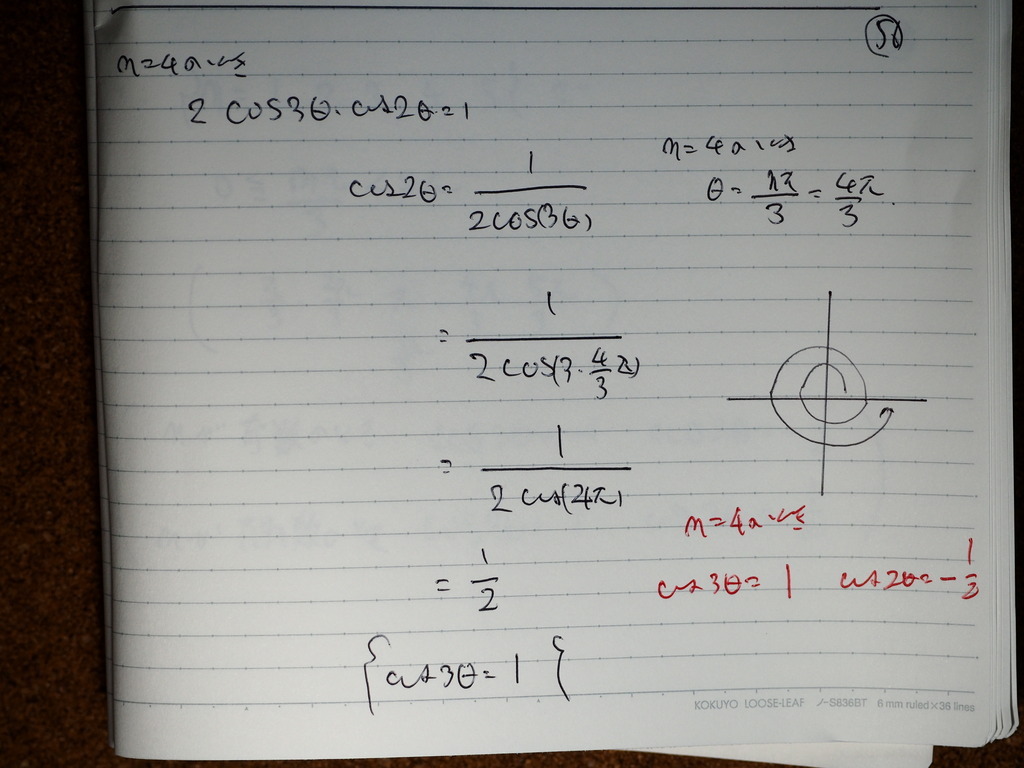 50
n=4のとき
2 cos3θ・cos2θ=1
cos2θ= 1/2cos(3θ)
n=4のとき
θ= nπ/3 = 4π/3.
= 1/2cos(3・4/3π)
= 1/2cos(4π)
= 1/2
n=4のとき
cos3θ= 1 cos2θ=-1/2
{cos3θ= 1 {
KOKUYO LOOSE-LEAF ノ-S836BT 6 mm ruled×36 lines